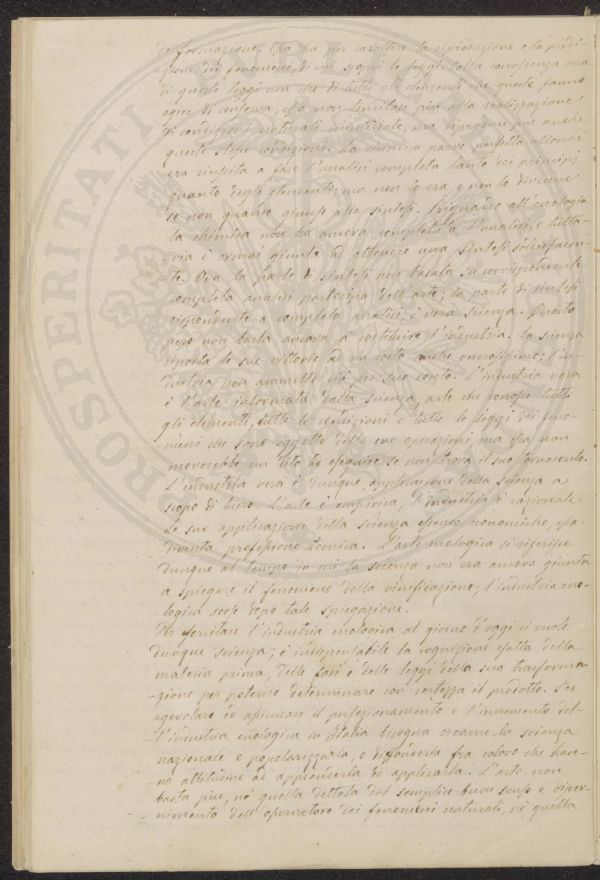 PROSPERITATI
di formazione. Essa ha per carattere la riproduzione e la predi-
zione dei fenomeni, di cui scoprì le leggi. Colla conoscenza ora
di queste leggi non che di tutti gli elementi che queste fanno
agire di conserva, essa non limitasi più alla realizzazione
di condizioni naturali, ma riproduce pur anche
queste stesse condizioni. La chimica parve perfetta allorché
era riuscita a fare l'analisi completa tanto dei principj
quanto degli elementi; ma non lo era, e non lo divenne
se non quando giunse alla sintesi. Riguardo all'enologia
la chimica non ha ancora completata l'analisi, e tutta-
via è ormai giunta ad ottenere una sintesi soddisfacen-
te. Ora la parte di sintesi non basata su corrispondente
completa analisi partecipa dell'arte; la parte di sintesi
rispondente a completa analisi, è vera scienza. Questo
però non basta ancora a costituire l'industria. La scienza
riporta le sue vittorie ad un costo anche energissimo; l'in-
dustria non ammette che per suo conto. L'industria vera
è l'arte informata dalla scienza, arte che conosce tutti
gli elementi, tutte le condizioni e tutte le leggi dei feno-
meni che sono oggetto delle sue operazioni, ma essa non
moverebbe un dito ad eseguire se non trova il suo tornaconto.
L'industria vera è dunque applicazione della scienza a
scopo di lucro. L'arte è empirica, l'industria è razionale.
Le sue applicazioni della scienza essendo economiche, essa
diventa professione tecnica. L'arte enologica si riferisce
dunque al tempo in cui la scienza non era ancora giunta
a spiegare il fenomeno della vinificazione; l'industria eno-
logica sorse dopo tale spiegazione.
Per esercitare l'industria enologica al giorno d'oggi si vuole
dunque scienza; è indispensabile la cognizione esatta della
materia prima, delle fasi e delle leggi della sua trasforma-
-zione per poterne determinare con certezza il prodotto. Per
agevolare ed assicurare il perfezionamento e l'incremento del-
l'industria enologica in Italia bisogna crearne la scienza
nazionale e popolarizzarla, e diffonderla fra coloro che han-
-no attitudine ad apprenderla ed applicarla. L'arte non
basta più, né quella dettata dal semplice buon senso e discer-
-nimento dell'osservatore dei fenomeni naturali, né quella